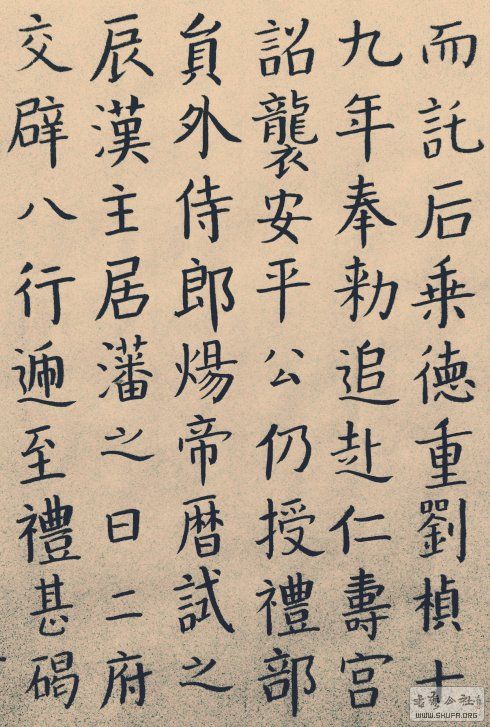 而託后乗徳重劉楨十
九年奉勑追赴仁壽宮
詔襲安平公仍授禮部
貟外侍郎煬帝暦試之
辰漢主居藩之日二府
交辟八行遞至禮甚碣
WWW.SHUFA.ORG